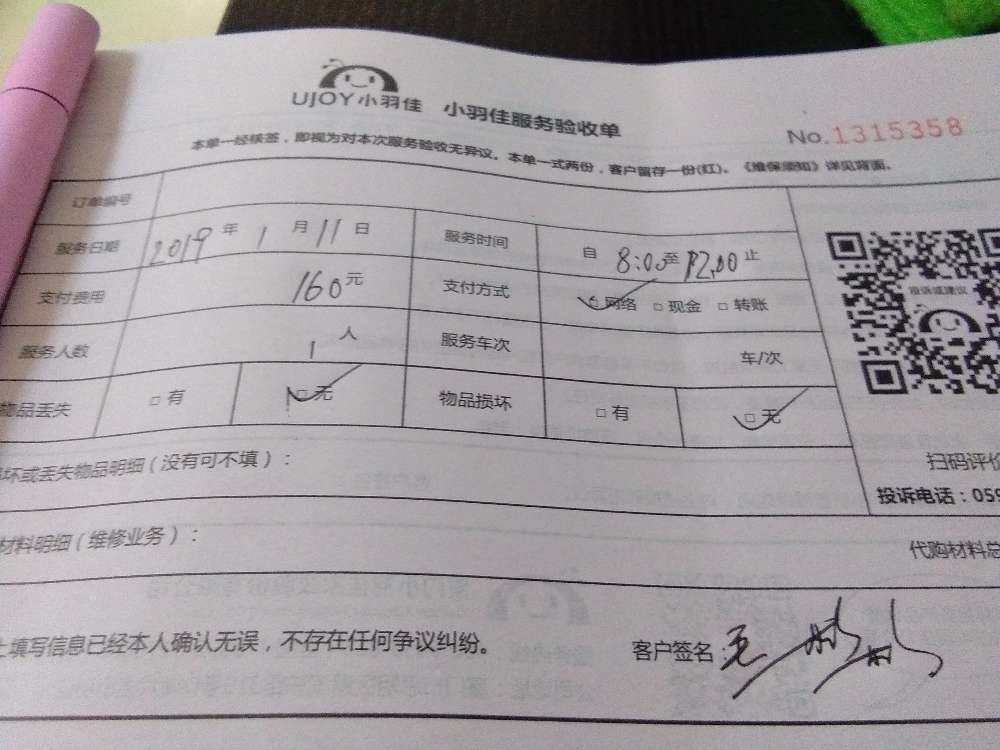 UJOY小羽佳 小羽佳服务验收单
No.1315358
本单一经核签，即视为对本次服务验收无异议。本单一式两份，客户留存一份(红)。《维保须知》详见背面。
订单编号
服务日期 2019 年 1 月 11 日 服务时间 自 8:00 至 12:00 止
支付费用 160 元 支付方式 □ 网络 □ 现金 □ 转账
服务人数 1 人 服务车次 车/次
物品丢失 □ 有 □ 无 物品损坏 □ 有 □ 无
投诉或建议
坏或丢失物品明细（没有可不填）：
扫码评价
投诉电话：059
材料明细（维修业务）：
代购材料总
上填写信息已经本人确认无误，不存在任何争议纠纷。
客户签名：